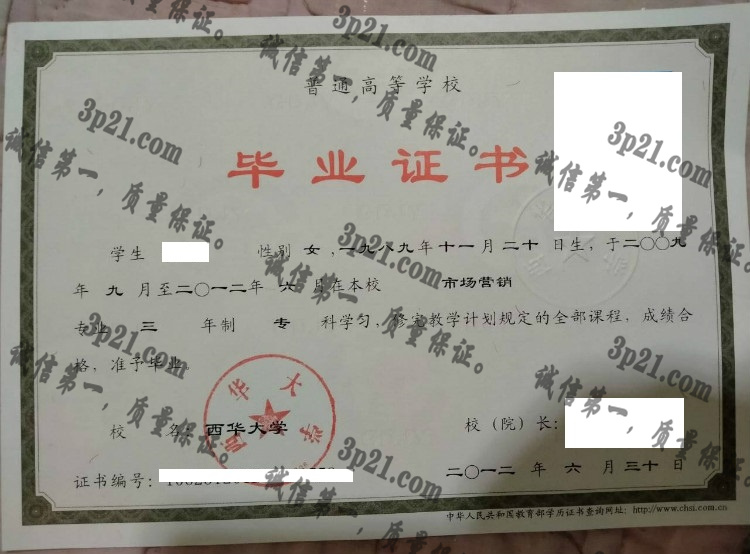 普通高等学校
毕业证书
学生 性别 女，一九八九年十一月二十日生，于二〇〇九
年 九 月至二〇一二年 六 月在本校 市场营销
专业 三 年制 专 科学习，修完教学计划规定的全部课程，成绩合
格，准予毕业。
校 名：西华大学 校（院）长：
西华大学
证书编号： 二〇一二 年 六 月 三十 日
中华人民共和国教育部学历证书查询网址：http://www.chsi.com.cn
3p21.com
诚信第一，质量保证。
3p21.com
诚信第一，质量保证。
3p21.com
诚信第一，质量保证。
3p21.com
诚信第一，质量保证。
3p21.com
诚信第一，质量保证。
3p21.com
诚信第一，质量保证。
3p21.com
诚信第一，质量保证。
诚信第一，质量保证。